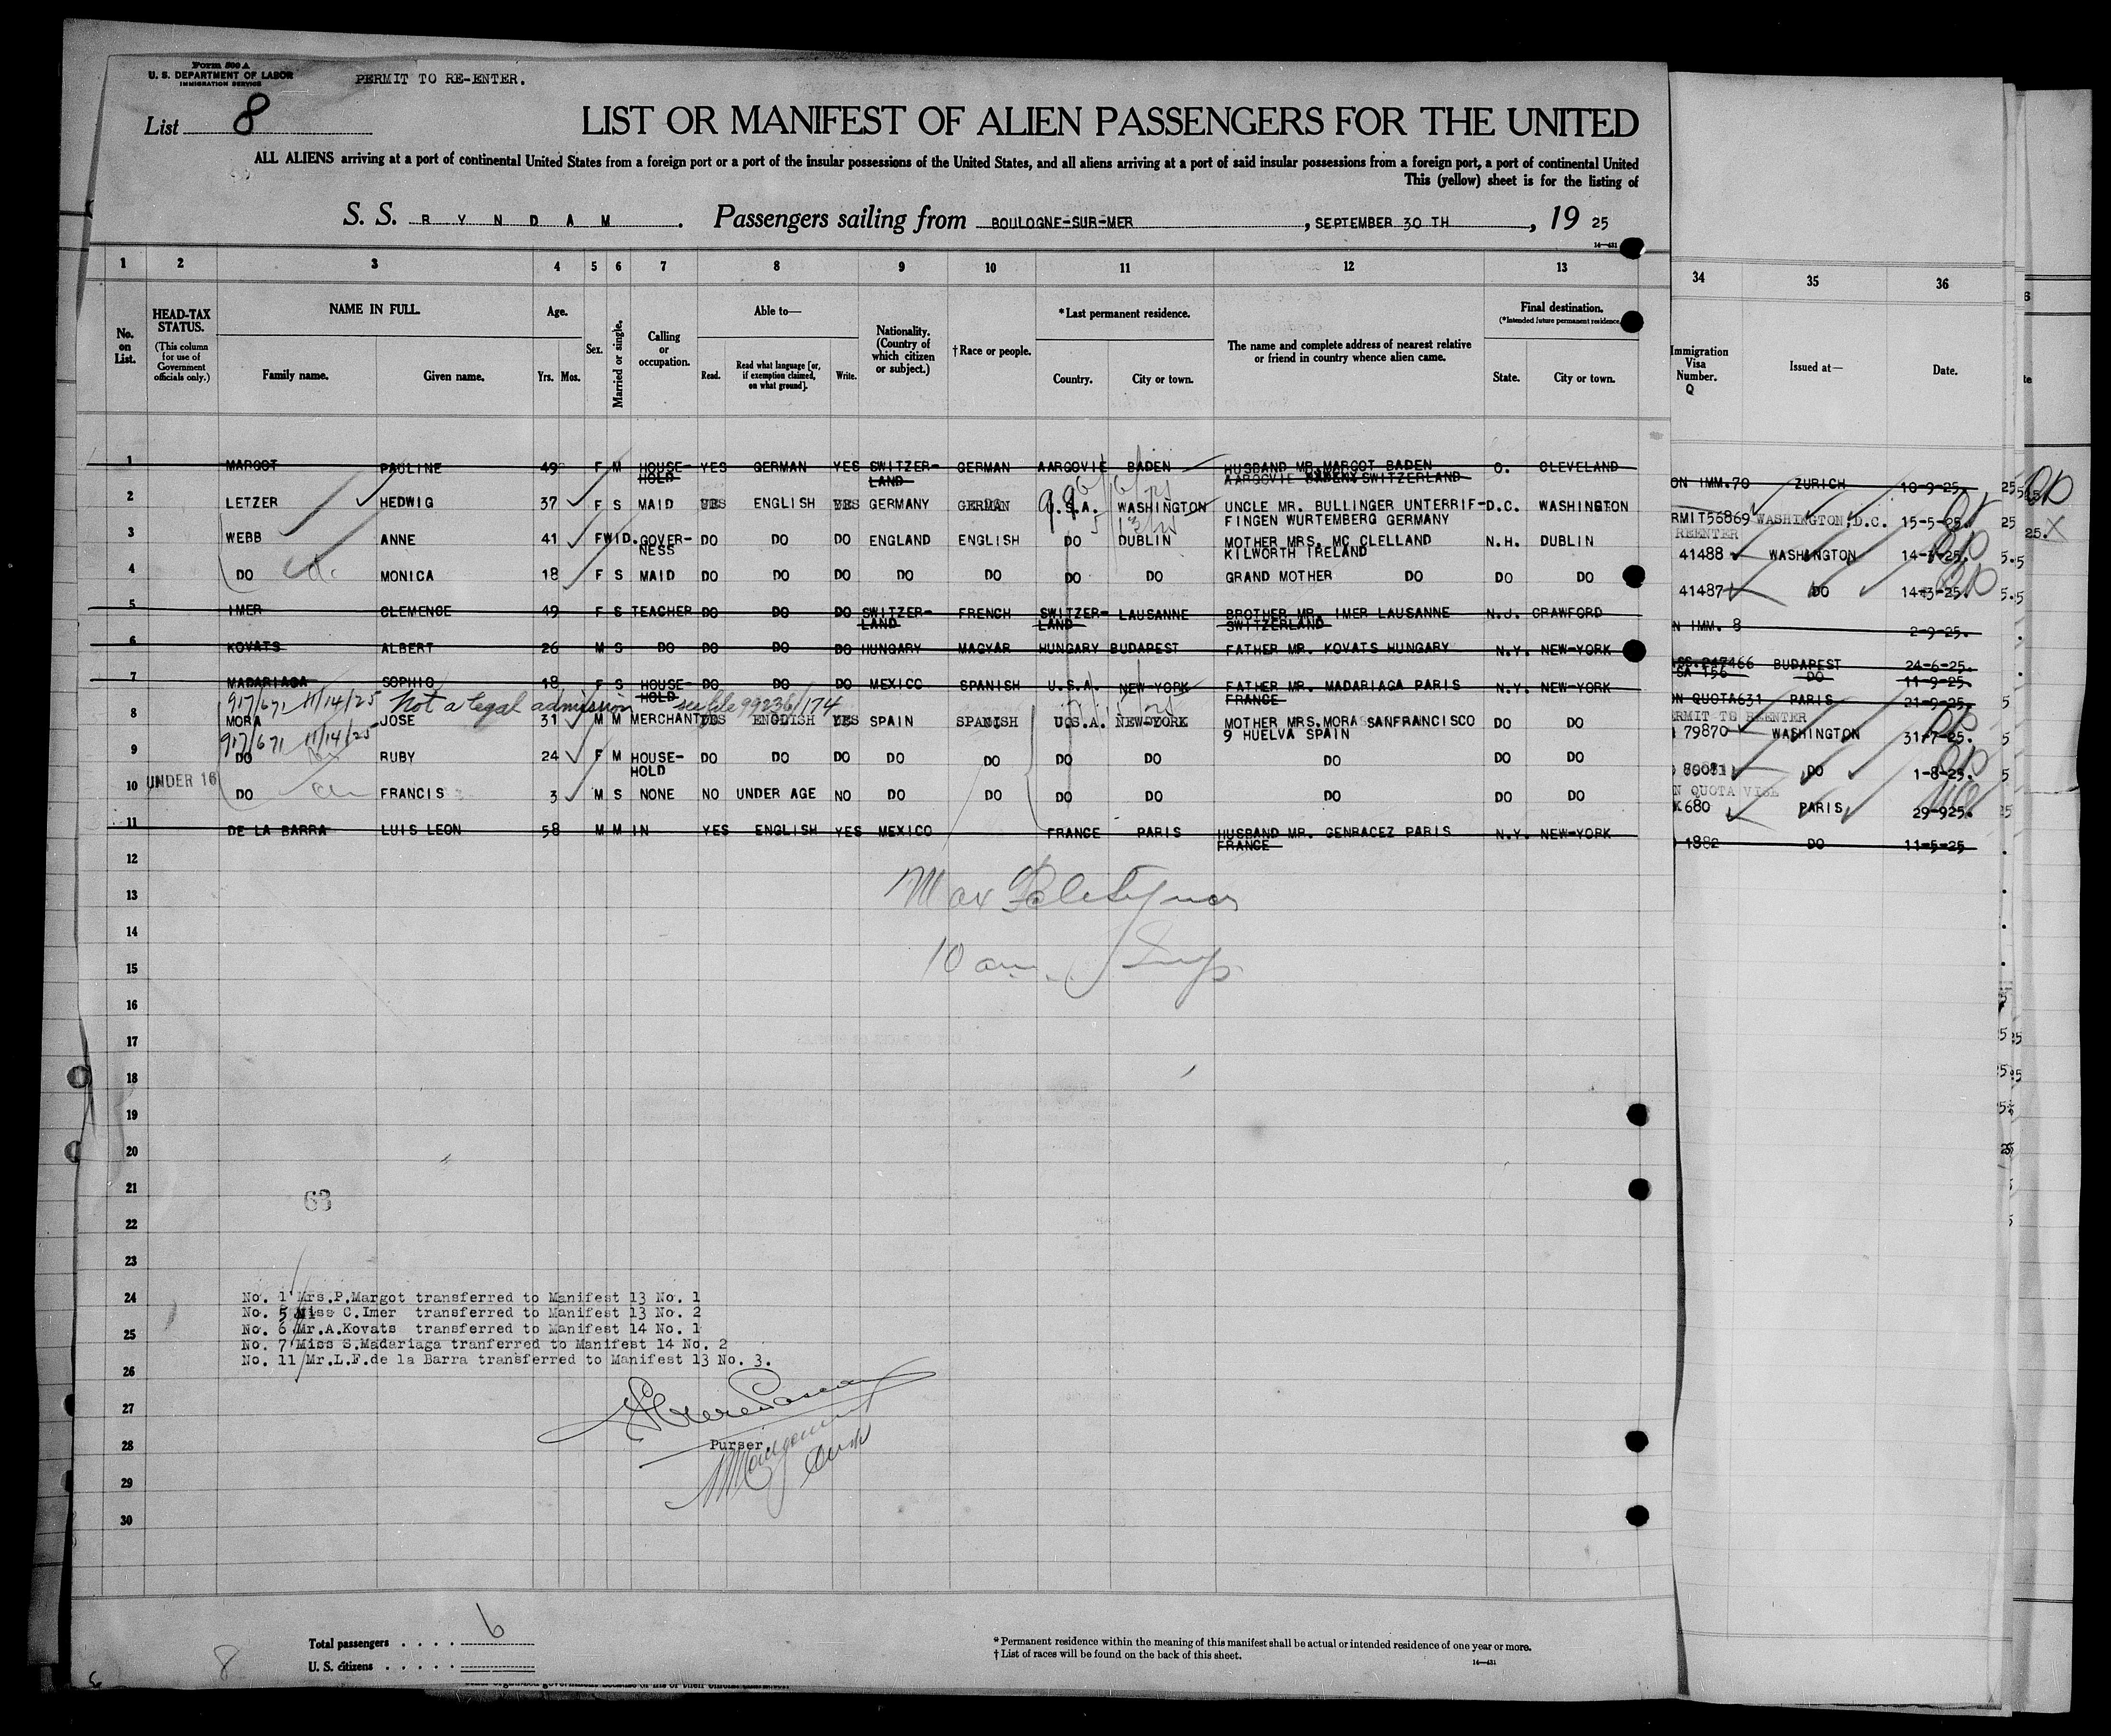 Form 500 A
U. S. DEPARTMENT OF LABOR
IMMIGRATION SERVICE
PERMIT TO RE-ENTER.
List 8
LIST OR MANIFEST OF ALIEN PASSENGERS FOR THE UNITED
ALL ALIENS arriving at a port of continental United States from a foreign port or a port of the insular possessions of the United States, and all aliens arriving at a port of said insular possessions from a foreign port, a port of continental United
This (yellow) sheet is for the listing of
S. S. R Y N D A M. Passengers sailing from BOULOGNE-SUR-MER, SEPTEMBER 30 TH, 19 25
14—431
1 2 3 4 5 6 7 8 9 10 11 12 13 34 35 36
No. on List.
HEAD-TAX STATUS.
(This column for use of Government officials only.)
NAME IN FULL.
Family name. Given name.
Age.
Yrs. Mos.
Sex.
Married or single.
Calling or occupation.
Able to—
Read. Read what language [or, if exemption claimed, on what ground]. Write.
Nationality. (Country of which citizen or subject.)
† Race or people.
*Last permanent residence.
Country. City or town.
The name and complete address of nearest relative or friend in country whence alien came.
Final destination.
(*Intended future permanent residence.
State. City or town.
Immigration Visa Number. Q
Issued at—
Date.
1 MARGOT PAULINE 49 F M HOUSE-HOLD YES GERMAN YES SWITZER-LAND GERMAN AARGOVIE BADEN HUSBAND MR. MARGOT BADEN O. CLEVELAND
AARGOVIE SWITZERLAND
ON IMM.70 ZURICH 10-9-25.
2 LETZER HEDWIG 37 F S MAID YES ENGLISH YES GERMANY GERMAN U.S.A. WASHINGTON UNCLE MR. BULLINGER UNTERRIF- D.C. WASHINGTON
FINGEN WURTEMBERG GERMANY
RMIT56869 WASHINGTON, D.C. 15-5-25.
REENTER
3 WEBB ANNE 41 F WID. GOVER-NESS DO DO DO ENGLAND ENGLISH DO DUBLIN MOTHER MRS. MC CLELLAND N.H. DUBLIN
KILWORTH IRELAND
41488 WASHINGTON 14-3-25.
4 DO MONICA 18 F S MAID DO DO DO DO DO DO DO GRAND MOTHER DO DO DO
41487 DO 14-3-25.
5 IMER CLEMENCE 49 F S TEACHER DO DO DO SWITZER-LAND FRENCH SWITZER-LAND LAUSANNE BROTHER MR. IMER LAUSANNE N.J. CRAWFORD
SWITZERLAND
N IMM. 8 2-9-25.
6 KOVATS ALBERT 26 M S DO DO DO DO HUNGARY MAGYAR HUNGARY BUDAPEST FATHER MR. KOVATS HUNGARY N.Y. NEW-YORK
BUDAPEST 24-6-25.
DO 11-9-25.
7 MADARIAGA SOPHIO 18 F S HOUSE-HOLD DO DO DO MEXICO SPANISH U.S.A. NEW-YORK FATHER MR. MADARIAGA PARIS N.Y. NEW-YORK
FRANCE
ON QUOTA631 PARIS 21-9-25.
917/671 11/14/25 Not a legal admission see file 99236/174
8 MORA JOSE 31 M M MERCHANT YES ENGLISH YES SPAIN SPANISH U.S.A. NEW-YORK MOTHER MRS. MORA SANFRANCISCO DO DO
9 HUELVA SPAIN
RMIT TO REENTER
79870 WASHINGTON 31-7-25.
917/671 11/14/25
9 DO RUBY 24 F M HOUSE-HOLD DO DO DO DO DO DO DO DO DO DO
80081 DO 1-8-25.
UNDER 16
10 DO FRANCIS 3 M S NONE NO UNDER AGE NO DO DO DO DO DO DO DO
N QUOTA VISE
680 PARIS 29-925.
11 DE LA BARRA LUIS LEON 58 M M IN YES ENGLISH YES MEXICO FRANCE PARIS HUSBAND MR. GENRACEZ PARIS N.Y. NEW-YORK
FRANCE
1882 DO 11-5-25
12
13
14
15
10 am
16
17
18
19
20
21
63
22
23
24
25
26
27
28
29
30
No. 1 Mrs.P.Margot transferred to Manifest 13 No. 1
No. 5 Miss C.Imer transferred to Manifest 13 No. 2
No. 6 Mr.A.Kovats transferred to Manifest 14 No. 1
No. 7 Miss S.Madariaga tranferred to Manifest 14 No. 2
No. 11 Mr.L.F.de la Barra transferred to Manifest 13 No. 3.
Purser
Total passengers . . . . 6
U. S. citizens . . . . .
8
* Permanent residence within the meaning of this manifest shall be actual or intended residence of one year or more.
† List of races will be found on the back of this sheet.
14—431